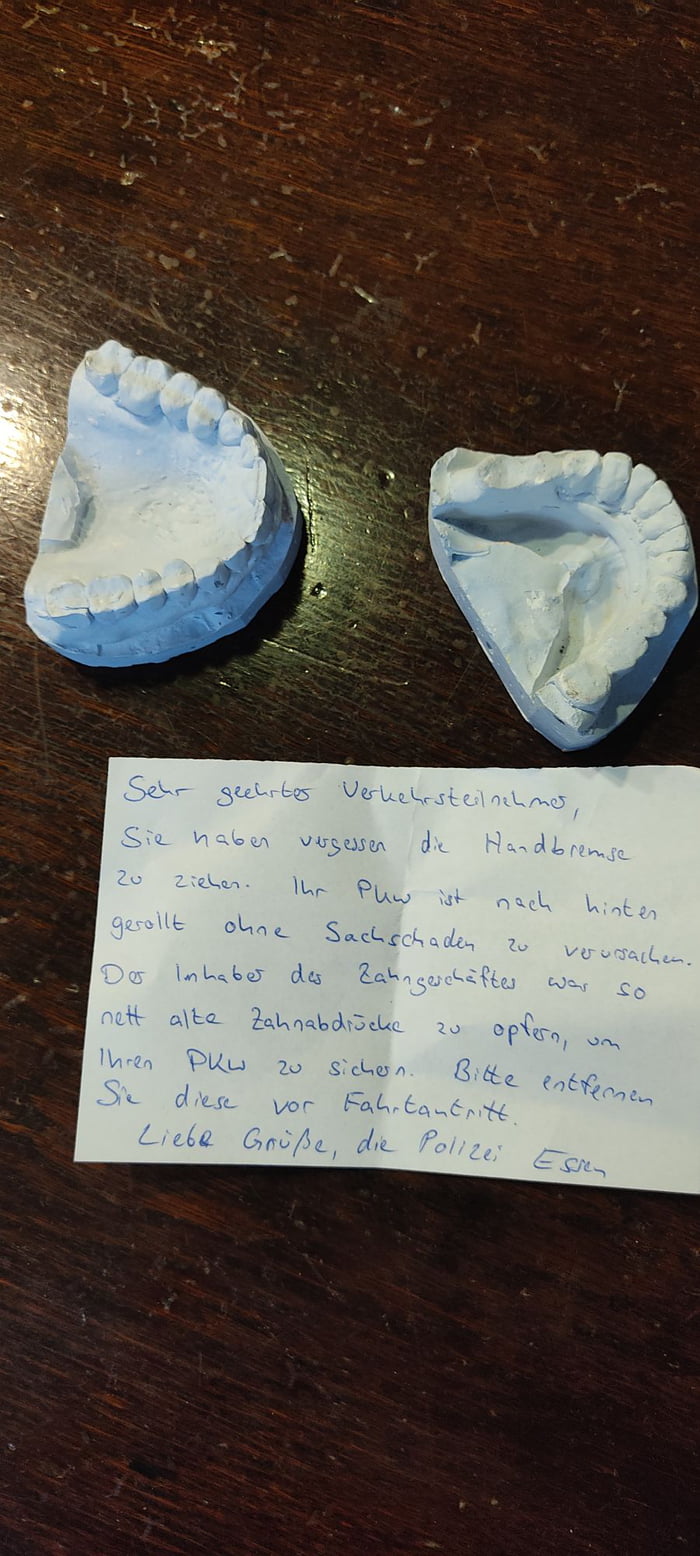 Sehr geehrter Verkehrsteilnehmer,
Sie haben vergessen die Handbremse
zu ziehen. Ihr PKW ist nach hinten
gerollt ohne Sachschaden zu verursachen.
Der Inhaber des Zahngeschäftes war so
nett alte Zahnabdrücke zu opfern, um
Ihren PKW zu sichern. Bitte entfernen
Sie diese vor Fahrtantritt.
Liebe Grüße, die Polizei Essen